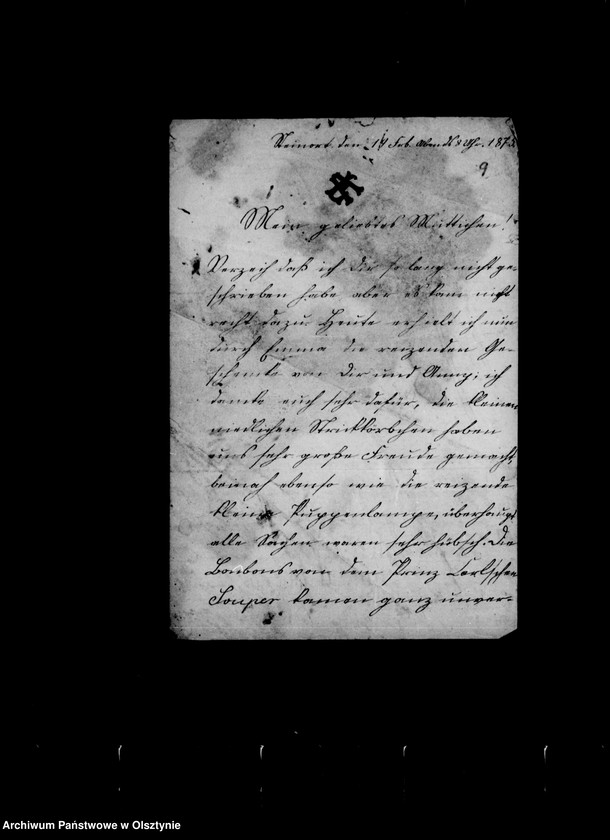 Steinort den 14 Feb. Abends 8 Uhr. 187
9
Mein geliebtes Muttichen!
Verzeih daß ich Dir so lang nicht ge-
schrieben habe aber es kam nicht
recht dazu. Heute erhielt ich nun
durch Emma die reizenden Ge-
schenke von Dir und Anny; ich
danke euch sehr dafür, die kleinen
niedlichen Strickkörbchen haben
uns sehr große Freude gemacht,
beinah ebenso wie die reizende
kleine Puppenlampe, überhaupt
alle Sachen waren sehr hübsch. Die
Bonbons von dem Prinz Carlschen
Souper kamen ganz unver-
Archiwum Państwowe w Olsztynie